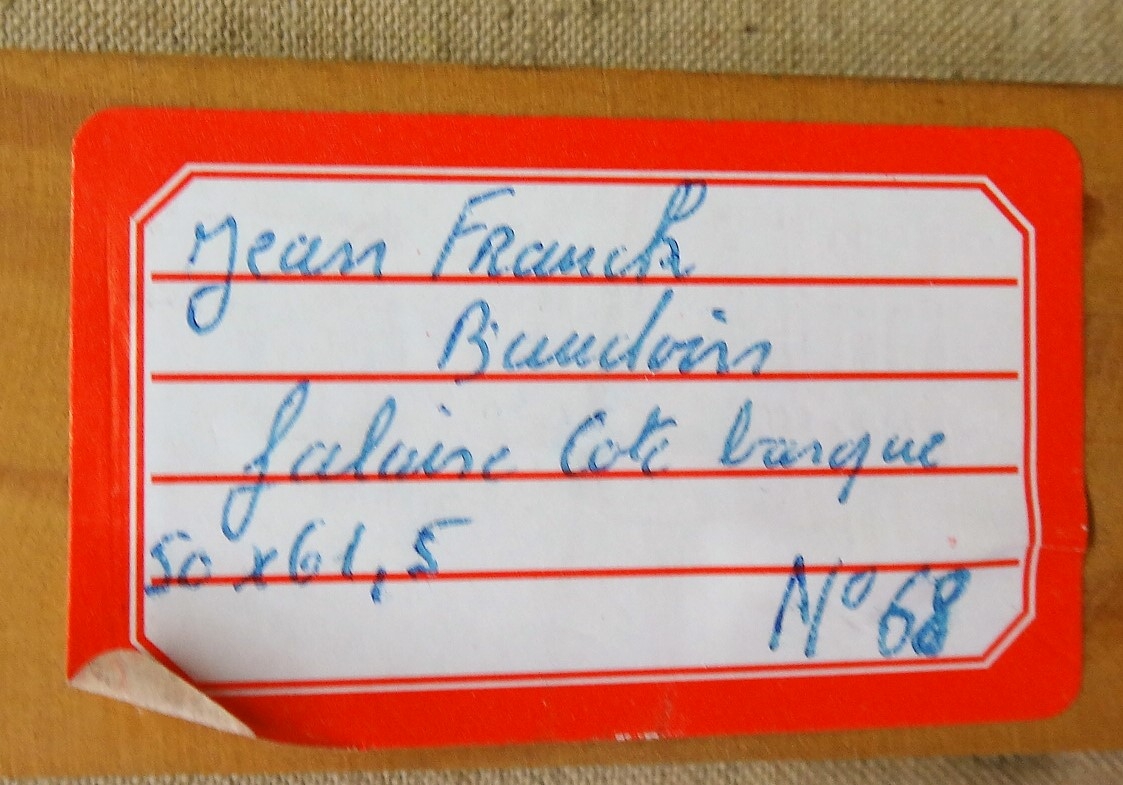 Jean Franck
Baudoin
falaise Cote basque
50 x 61,5
N° 68